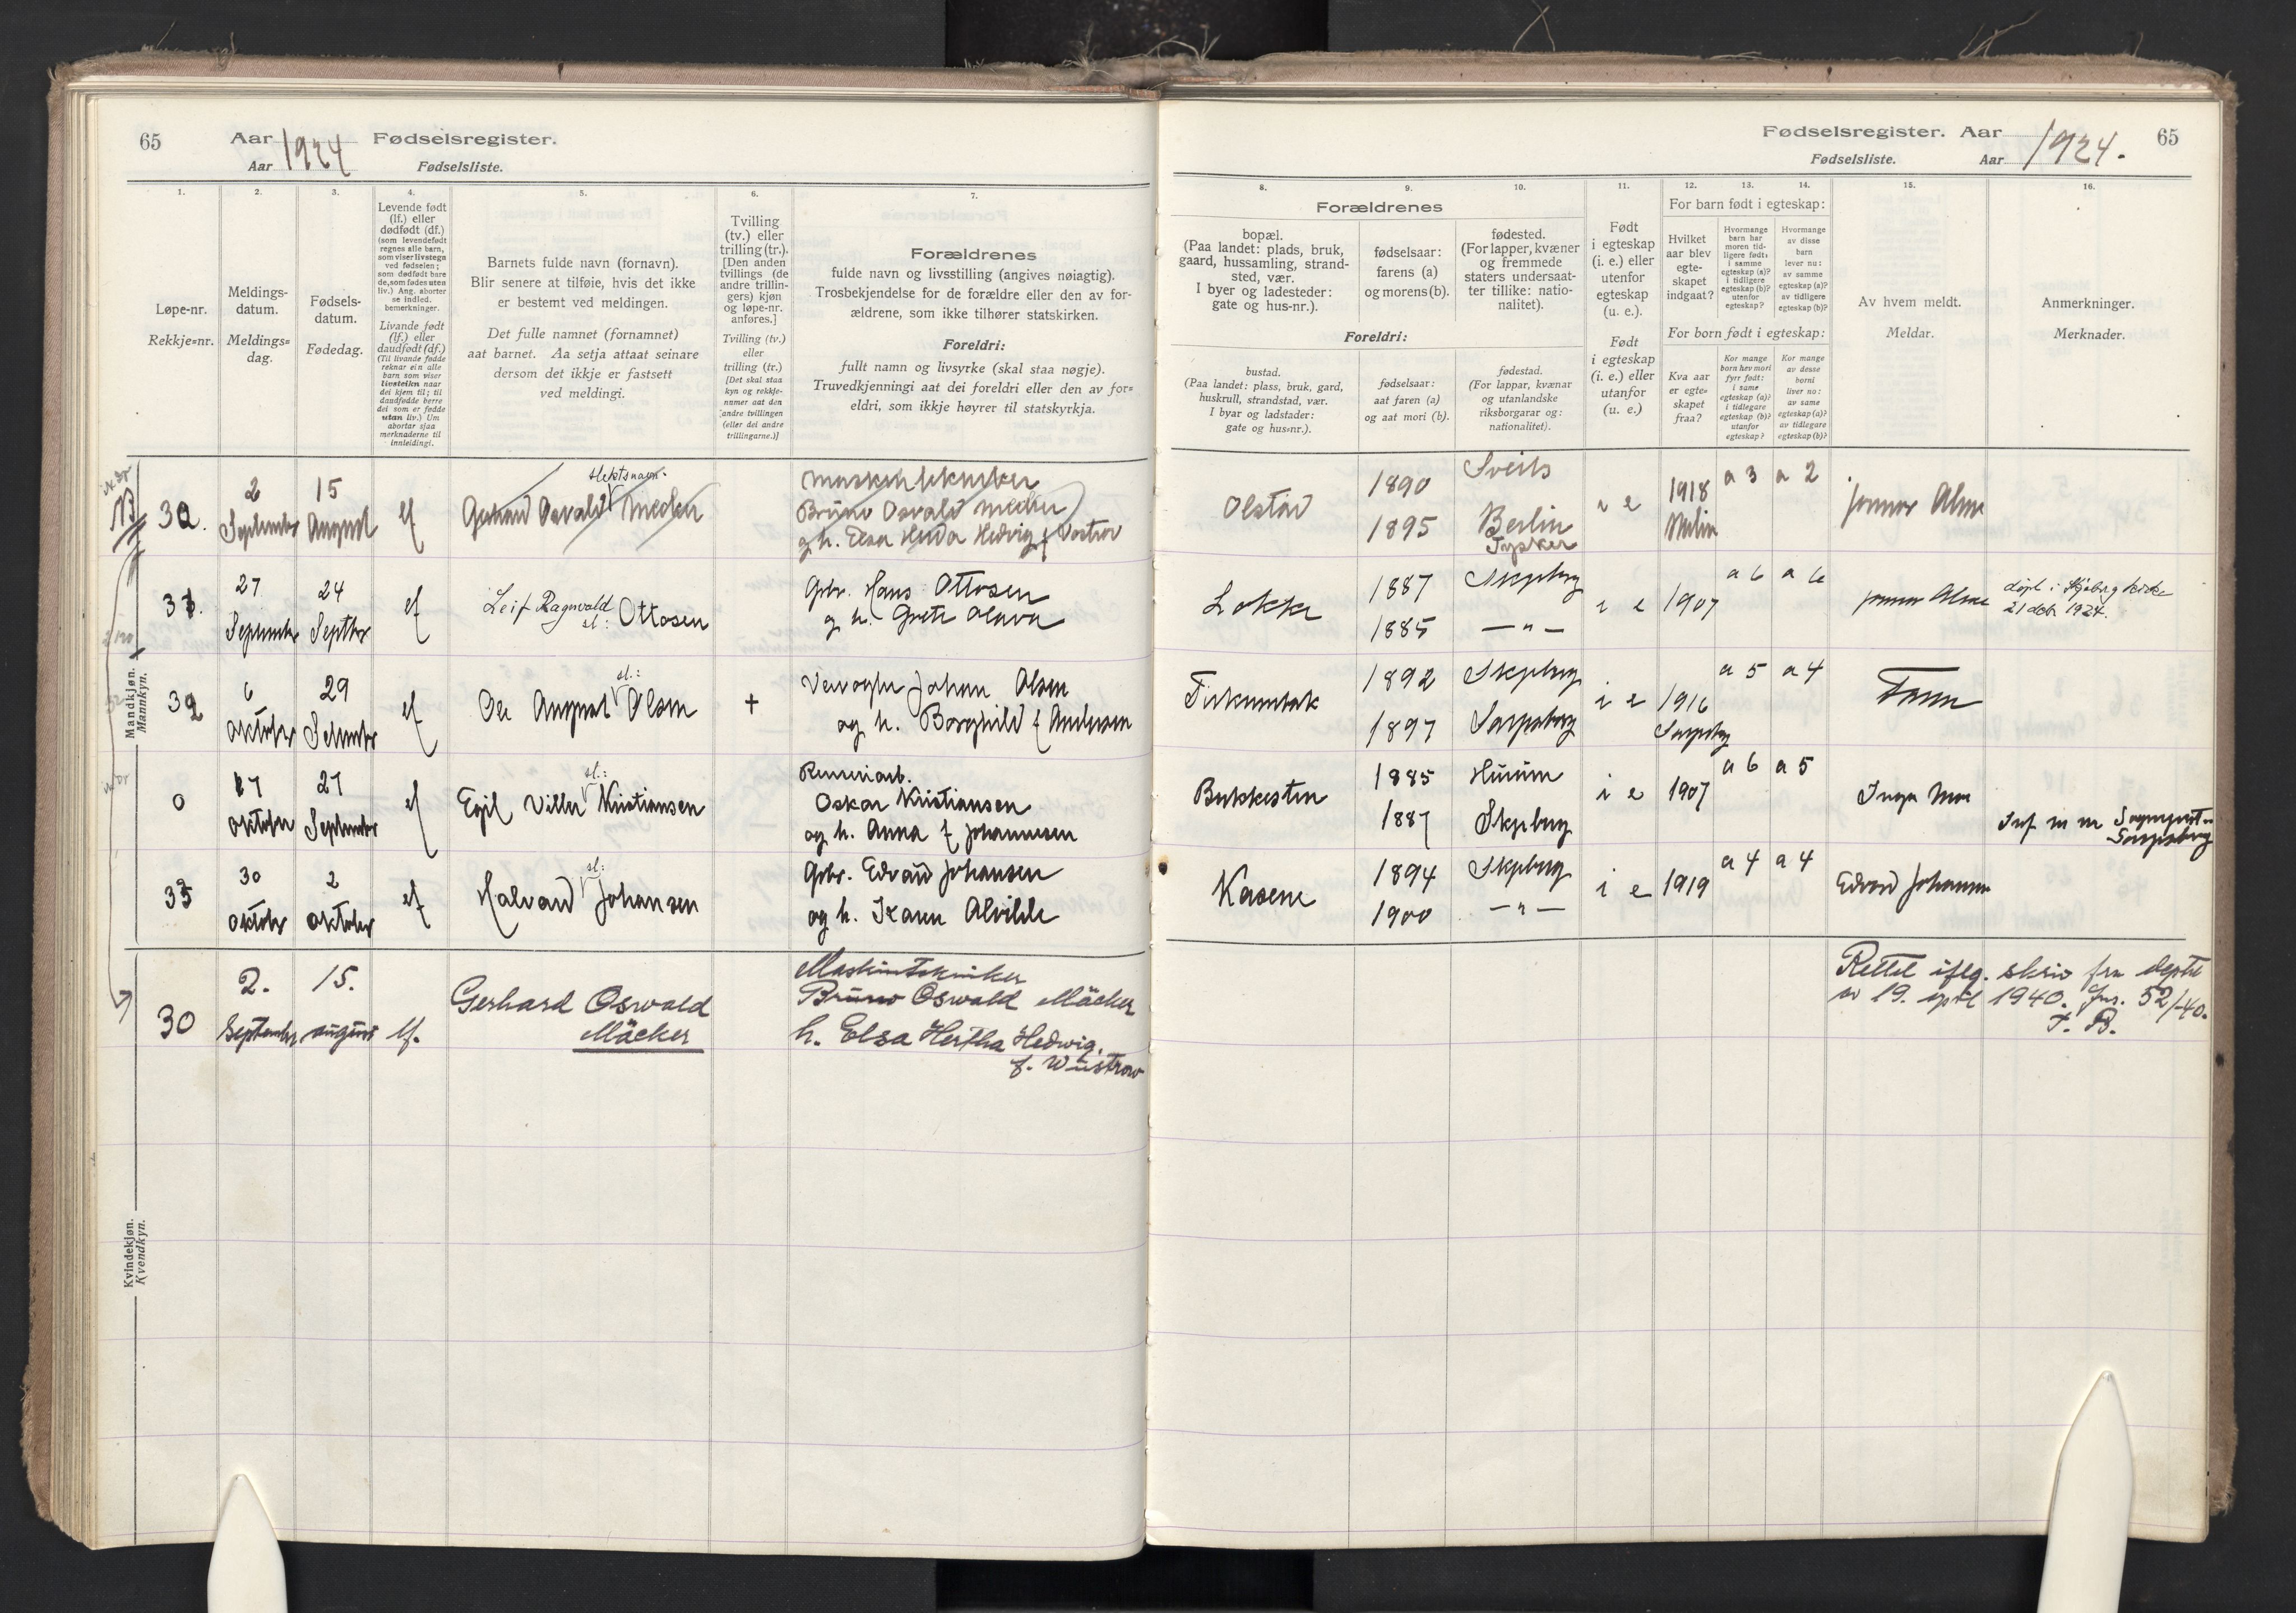 65
Aar 1924 Fødselsregister.
Aar Fødselsliste.
1.
2.
3.
4.
5.
6.
7.
Løpe-nr.
Rekkje=nr.
Meldings-
datum.
Meldings=
dag.
Fødsels-
datum.
Fødedag.
Levende født
(lf.) eller
dødfødt (df.)
(som levendefødt
regnes alle barn,
som viser livstegn
ved fødselen;
som dødfødt bare
de, som fødes uten
liv.) Ang. aborter
se indled.
bemerkninger.
Livande født
(lf.) eller
daudfødt (df.)
(Til livande fødde
reknar ein alle
barn som viser
livsteikn naar
dei kjem til; til
daudfødde berre
dei som er fødde
utan liv.) Um
abortar sjaa
merknaderne til
innleidingi.
Barnets fulde navn (fornavn).
Blir senere at tilføie, hvis det ikke
er bestemt ved meldingen.
Det fulle namnet (fornamnet)
aat barnet. Aa setja attaat seinare
dersom det ikkje er fastsett
ved meldingi.
Tvilling
(tv.) eller
trilling (tr.).
[Den anden
tvillings (de
andre trillin-
gers) kjøn
og løpe-nr.
anføres.]
Tvilling (tv.)
eller
trilling (tr.)
[Det skal staa
kyn og rekkje-
numer aat den
andre tvillingen
(eller dei andre
trillingarne.)]
Forældrenes
fulde navn og livsstilling (angives nøiagtig).
Trosbekjendelse for de forældre eller den av for-
ældrene, som ikke tilhører statskirken.
Foreldri:
fullt namn og livsyrke (skal staa nøgje).
Truvedkjenningi aat dei foreldri eller den av for=
eldri, som ikkje høyrer til statskyrkja.
Mandkjøn.
Mannkyn.
NB
30.
2
September
15
August
lf
slektsnavn.
Gerhard Osvald Mecker
Maskintekniker
Bruno Osvald Mecker
g. h. Elsa Herda Hedvig f Vostrov
31.
27
September
24
Septbr
lf
Leif Ragnvald
sl: Ottosen
Gbr. Hans Ottosen
g. h. Grete Olava
32
6
oktober
29
September
lf
sl.:
Ole August Olsen
+
Johan Olsen
og h. Borghild f Andersen
0
17
oktober
27
September
lf
sl.:
Egil Villy Kristiansen
Oskar Kristiansen
og h. Anna f Johannesen
33
30
oktober
2
oktober
lf
sl:
Halvard Johansen
Gbr. Edvard Johansen
og h. Karen Alvilde
Kvindekjøn.
Kvendkyn.
30
2.
September
15.
august
lf.
Gerhard Oswald
Mäcker
Maskintekniker
Bruno Oswald Mäcker
h. Elsa Hertha Hedwig.
f. Wüstrow
Fødselsregister. Aar 1924. 65
Fødselsliste. Aar
8.
9.
10.
11.
12.
13.
14.
15.
16.
Forældrenes
bopæl.
(Paa landet: plads, bruk,
gaard, hussamling, strand-
sted, vær.
I byer og ladesteder:
gate og hus-nr.).
fødselsaar:
farens (a)
og morens (b).
fødested.
(For lapper, kvæner
og fremmede
staters undersaat-
ter tillike: natio-
nalitet).
Foreldri:
bustad.
(Paa landet: plass, bruk, gard,
huskrull, strandstad, vær.
I byar og ladstader:
gate og hus=nr.).
fødselsaar:
aat faren (a)
og aat mori (b).
fødestad.
(For lappar, kvænar
og utanlandske
riksborgarar og:
nationalitet).
Født
i egteskap
(i. e.) eller
utenfor
egteskap
(u. e.).
Født
i egteskap
(i. e.) eller
utanfor
(u. e.)
For barn født i egteskap:
Hvilket
aar blev
egte-
skapet
indgaat?
Hvormange
barn har
moren tid-
ligere født:
i samme
egteskap (a)?
i tidligere
egteskap (b)?
utenfor
egteskap?
Hvormange
av disse
barn
lever nu:
av samme
egteskap (a)?
av tidligere
egteskap (b)?
For born født i egteskap:
Kva aar
er egte-
skapet
fraa?
Kor mange
born hev mori
fyrr født:
i same
egteskap (a)?
i tidlegare
egteskap (b)?
utanfor
egteskap?
Kor mange
av desse
borni
liver no:
av same
egteskap (a)?
av tidlegare
egteskap (b)?
Av hvem meldt.
Meldar.
Anmerkninger.
Merknader.
Olstad
1890
1895
Sveits
Berlin
Tysker
i e
1918
a 3 a 2
Lokke
1887
1885
Skjeberg
— " —
i e 1907
a 6 a 6
døpt i Skjeberg kirke
21 dcb 1924.
1892
1897
Skjeberg
Sarpsborg
i e 1916
Sarpsborg
a 5 a 4
Bukkesten
1885
1887
Hurum
Skjeberg
i e 1907
a 6 a 5
Inga Moe
Sarpsborg
Kasene
1894
1900
Skjeberg
— " —
i e 1919
a 4 a 4
Edvard Johansen
Rettet iflg. skriv fra deptet
av 19. april 1940. Jnr. 52/-40.
T. B.